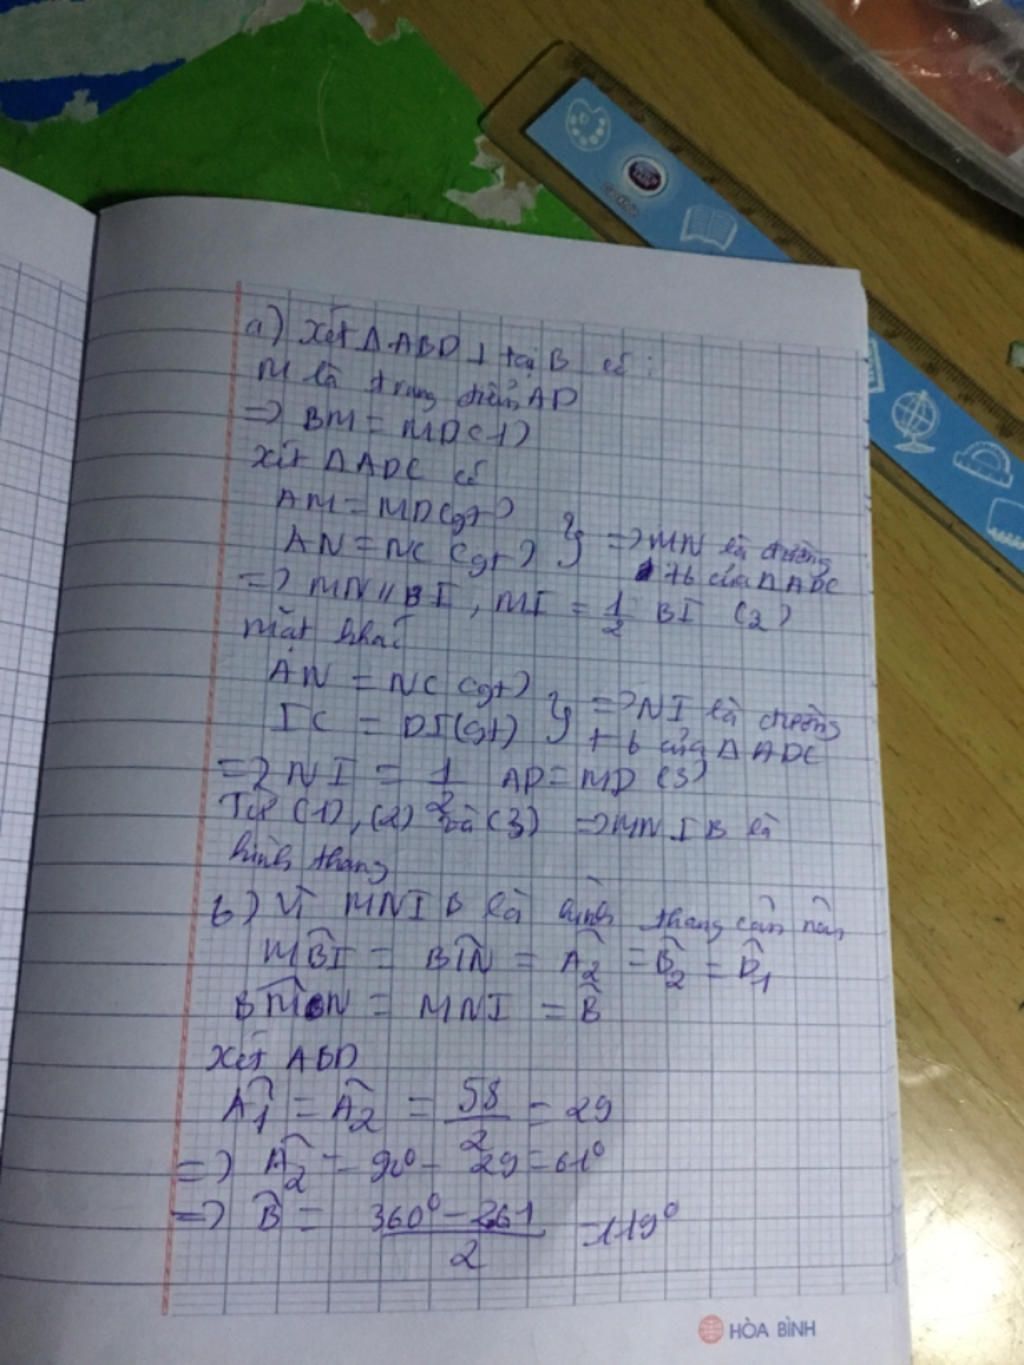 a) Xét Δ ABD ⊥ tại B có :
M là trung điểm AD
=> BM = MD (1)
Xét Δ ADC có
AM = MD (gt)
AN = NC (gt) } => MN là đường
tb của Δ ADC
=> MN // BI , MI = 1/2 BI (2)
Mặt khác
AN = NC (gt)
IC = DI (gt) } => NI là đường
tb của Δ ADC
=> NI = 1/2 AD = MD (3)
Từ (1), (2) và (3) => MNIB là
hình thang
b) Vì MNIB là hình thang cân nên
MBI = BIN = A2 = B2 = D1
BMN = MNI = B
Xét ABD
A1 = A2 = 58/2 = 29
=> A2 = 90° - 29 = 61°
=> B = 360° - 261 / 2 = 119°
HÒA BÌNH